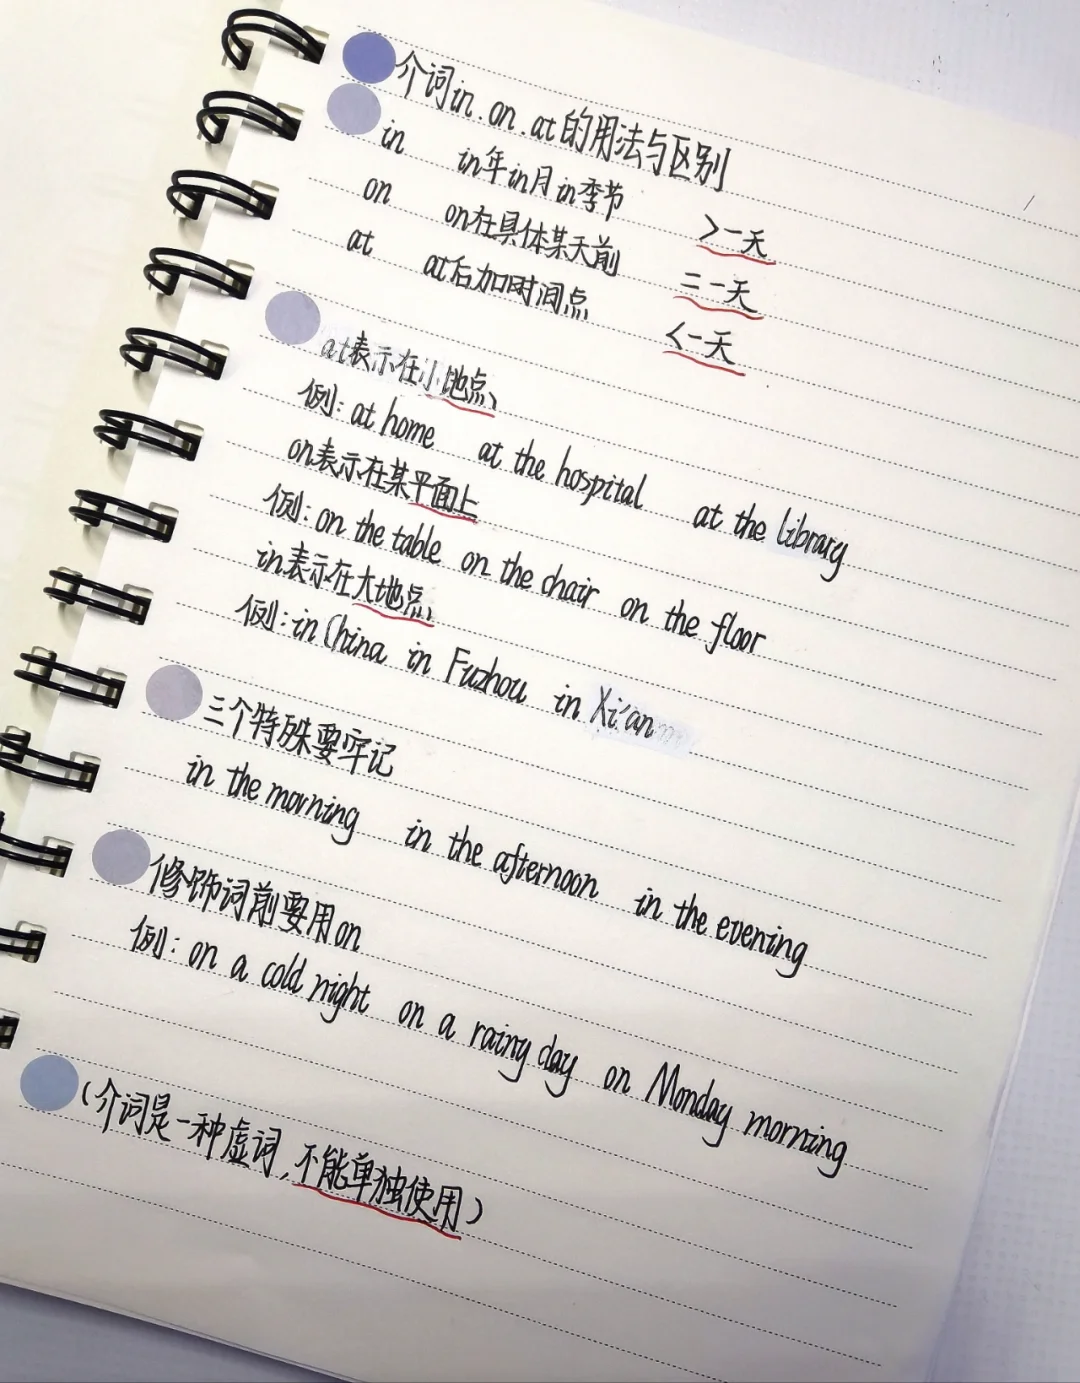 介词in.on.at的用法与区别
in in年in月in季节 >一天
on on在具体某天前 =一天
at at后加时间点 <一天
at表示在小地点
例:at home at the hospital at the library
on表示在某平面上
例:on the table on the chair on the floor
in表示在大地点
例:in China in Fuzhou in Xi'an
三个特殊要牢记
in the morning in the afternoon in the evening
修饰词前要用on
例:on a cold night on a rainy day on Monday morning
(介词是一种虚词,不能单独使用)